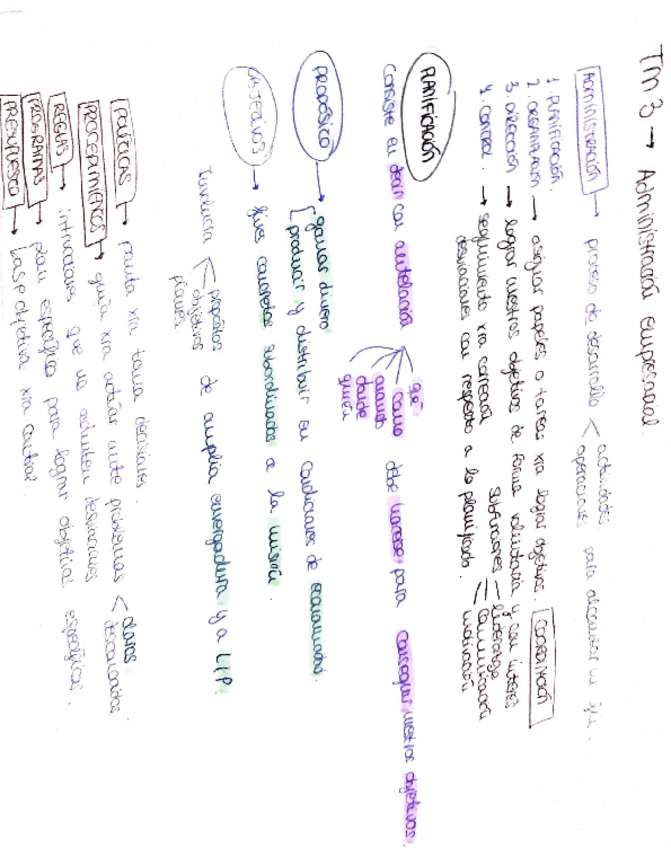 Tm 3 → Administración empresarial.
ADMINISTRACIÓN → proceso de desarrollo < actividades operaciones para alcanzar un fin.
1. PLANIFICACIÓN.
2. ORGANIZACIÓN → asignar papeles o tareas xra lograr objetivos. COORDINACIÓN
3. DIRECCIÓN → lograr nuestros objetivos de forma voluntaria y con interés
subfunciones = liderazgo comunicación motivación
4. CONTROL. → seguimiento xra corrección
desviaciones con respecto a lo planificado.
PLANIFICACIÓN
Consiste en decir con antelación qué como cuando donde quién debe hacerse para conseguir nuestros objetivos.
PROPÓSITO → [ganar dinero
producir y distribuir en condiciones de economicidad.
OBJETIVOS → fines concretos subordinados a la misión.
< propósitos objetivos planes de amplia envergadura y a L/P.
POLÍTICAS → pauta xra toma decisiones.
PROCEDIMIENTOS → guía xra actuar ante problemas < claros
REGLAS → instrucciones que no admiten desviaciones
PROGRAMAS → plan específico para lograr objetivos específicos.
PRESUPUESTO → base objetiva xra control.